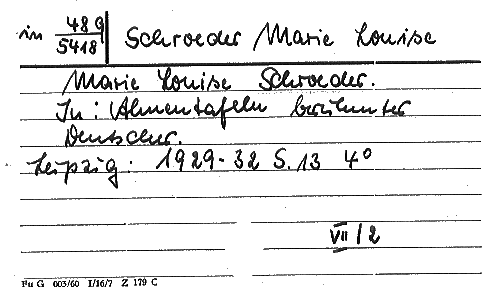 in 48 q / 5418 Schroeder Marie Louise
Marie Louise Schroeder.
In: Ahnentafeln berühmter
Deutscher.
Leipzig: 1929-32 S. 13 4°
VII/2
Fu G 003/60 I/16/7 Z 179 C